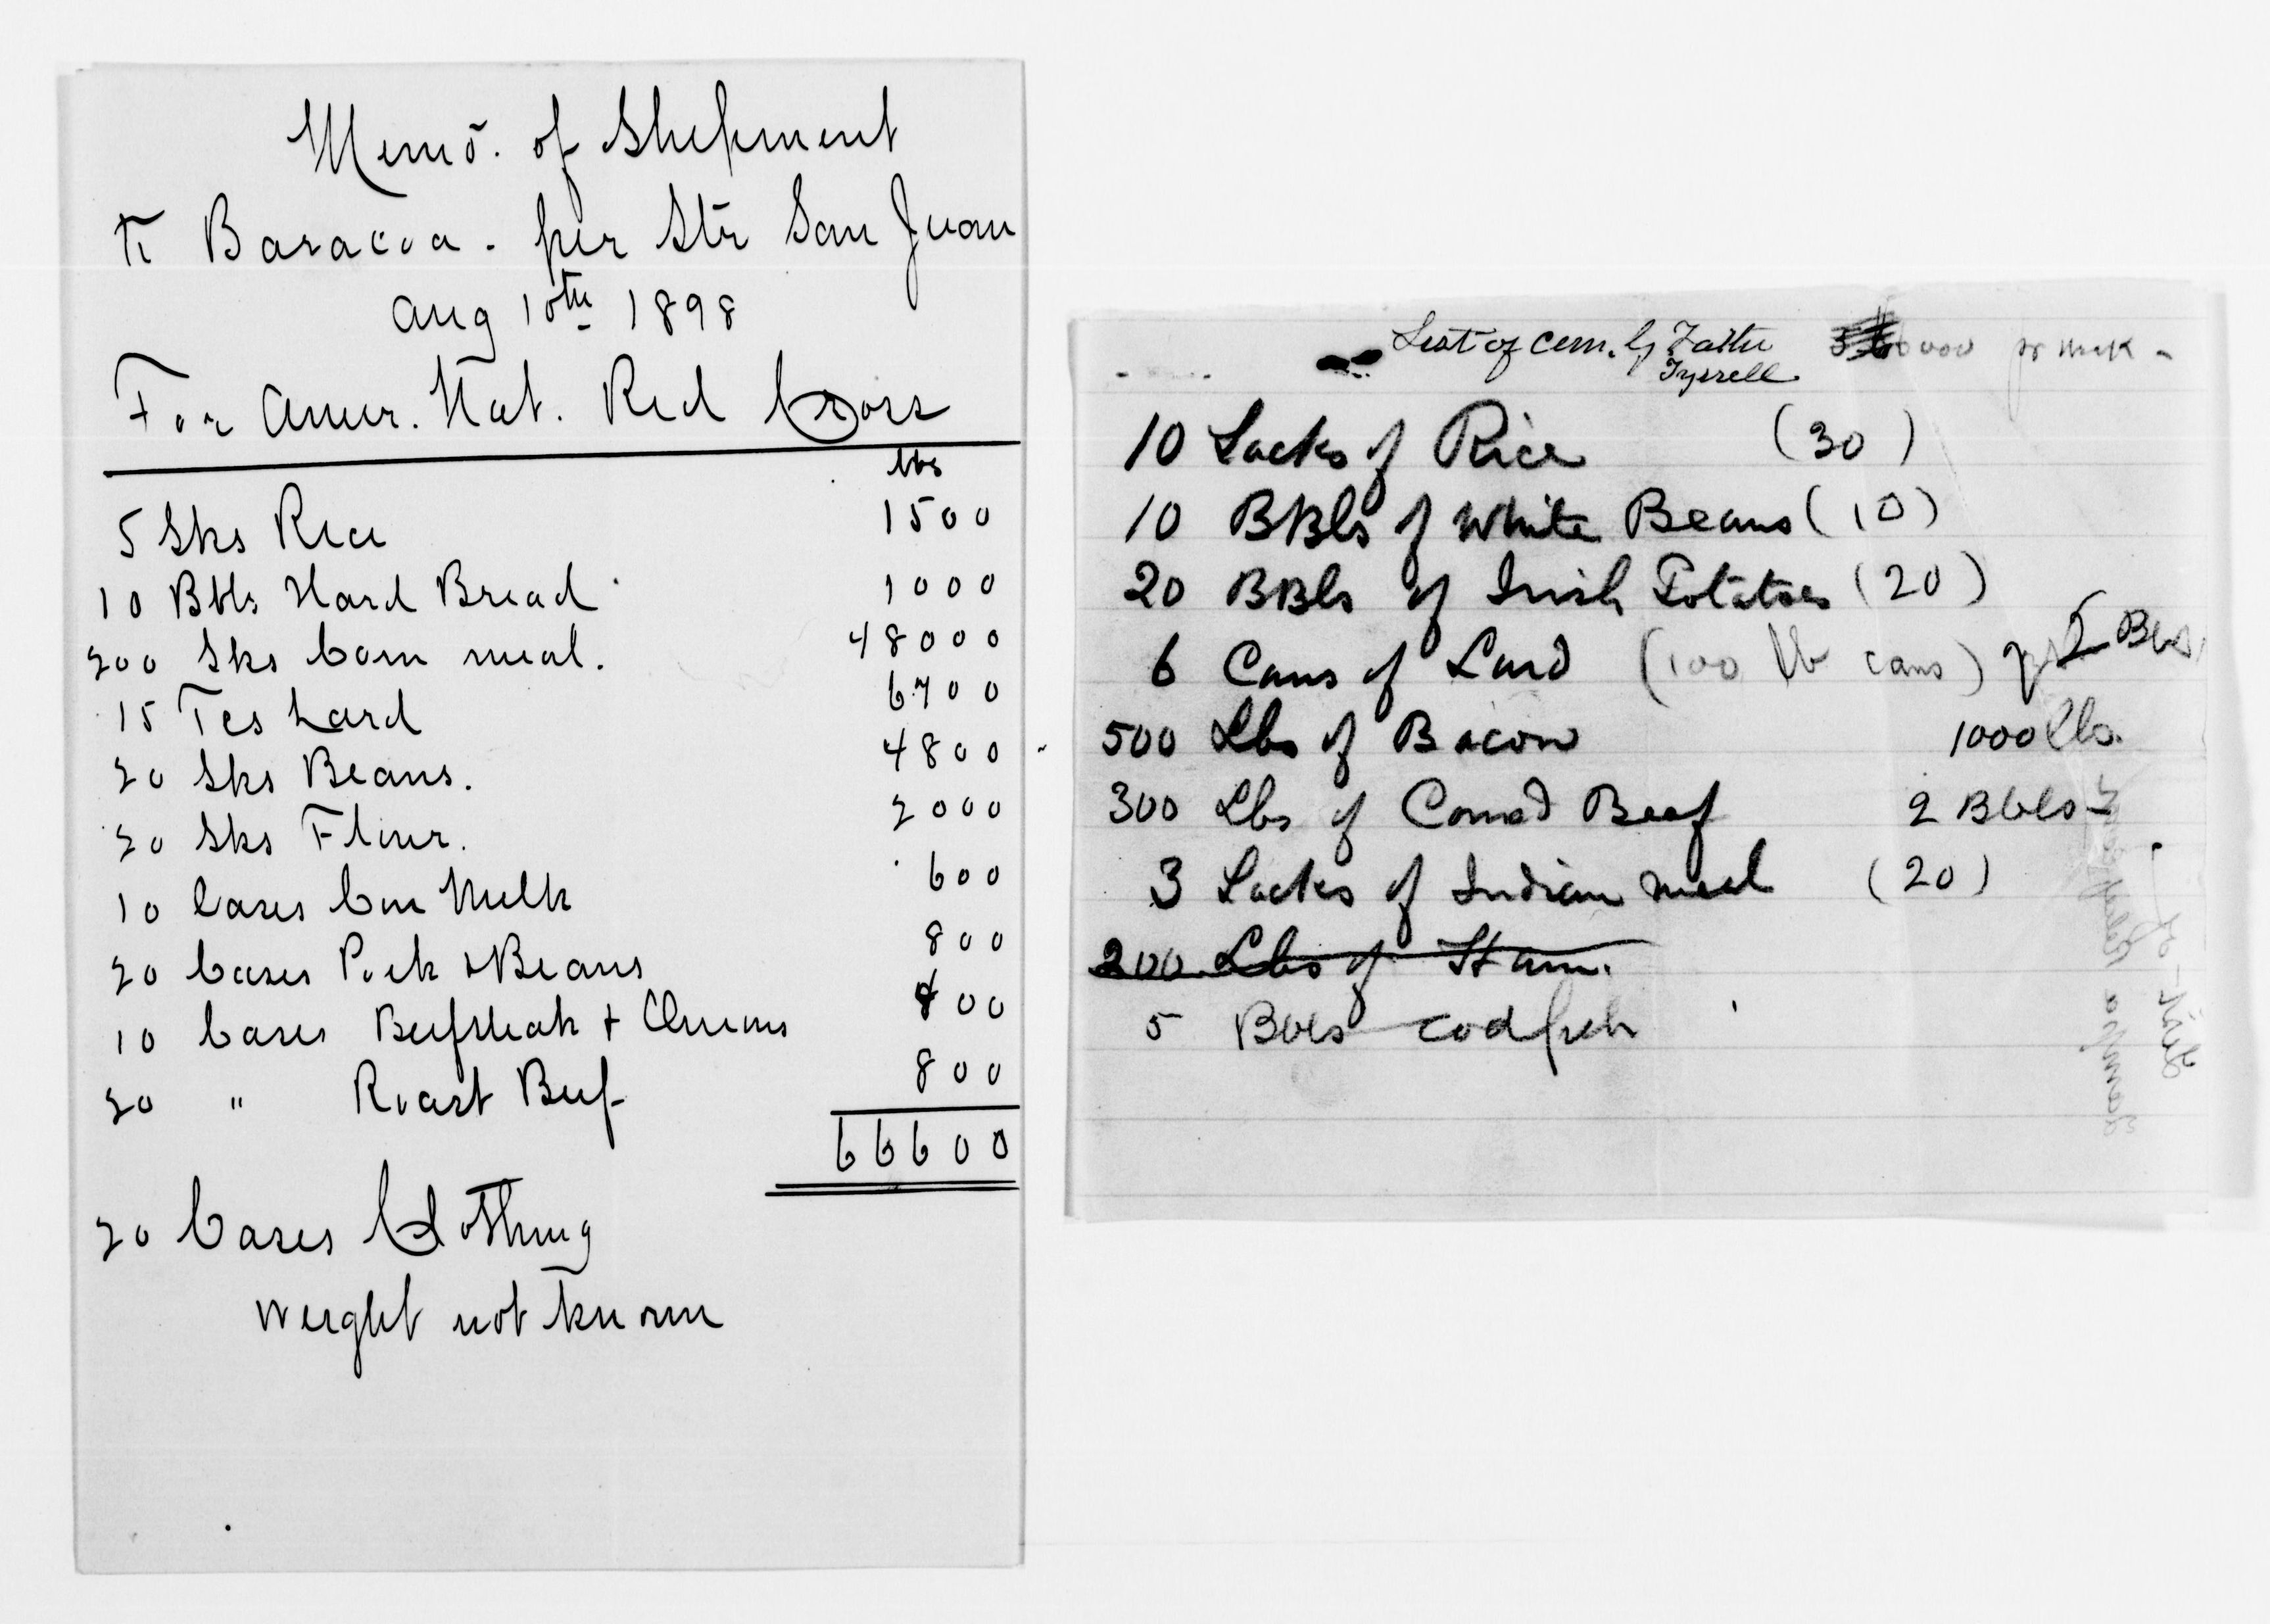 Memo. of Shipment
To Baracoa. per Str San Juan
Aug 10th 1898
For Amer. Nat. Red Cross
lbs
5 Sks Rice 1500
10 Bbls Hard Bread 1000
200 Sks Corn meal. 48000
15 Tcs Lard 6700
20 Sks Beans. 4800
20 Sks Flour. 2000
10 Cases Con Milk 600
20 Cases Pork & Beans 800
10 Cases Beefsteak & Onions 400
20 " Roast Beef 800
66600
20 Cases Clothing
Weight not known
List of Com. by Father
Tyrrell
6000 pr week -
10 Sacks of Rice (30)
10 BBls of White Beans (10)
20 BBls of Irish Potatoes (20)
6 Cans of Lard (100 lb cans) 5 Bbls
500 Lbs of Bacon 1000 lbs.
300 Lbs of Corned Beef 2 Bbls
3 Sacks of Indian meal (20)
200 Lbs of Ham.
5 Bbls codfish